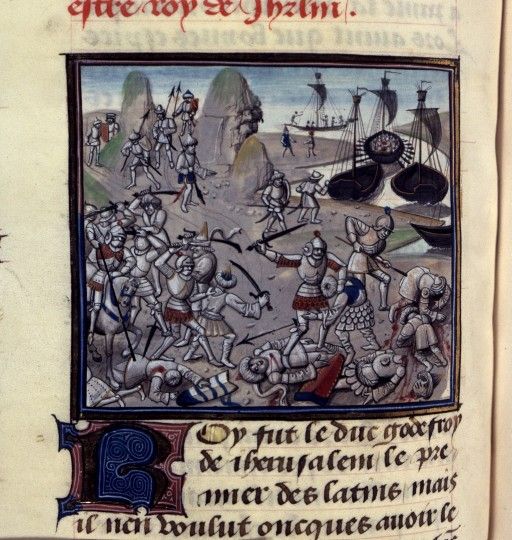 estre roy de Jhrlm.
Roy fut le duc godefroy
de iherusalem le pre
mier des latins mais
il nen voulut oncques auoir le